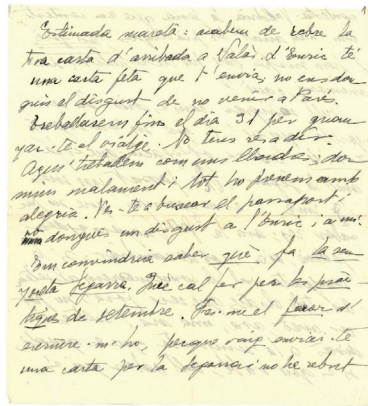 1
Estimada mareta: acabem de rebre la
teva carta d'arribada a Valls. L'Enric té
una carta feta que t'envia; no ens don
guis el disgust de no venir a París.
Treballarem fins el dia 31 per guan
yar-te el viatge. No tens res a dir.
Aquí treballem com uns lladres; dor
mim malament i tot ho prenem amb
alegria. Ves-te a buscar el passaport i
donguis un disgust a l'Enric i a mi.
Em convindria saber què fa la sen
yoreta Segarra. Què cal fer per les pràc
tiques de setembre. Fes-me el favor d'
escriure-m'ho, perquè vaig enviar-te
una carta per la Segarra i no he rebut